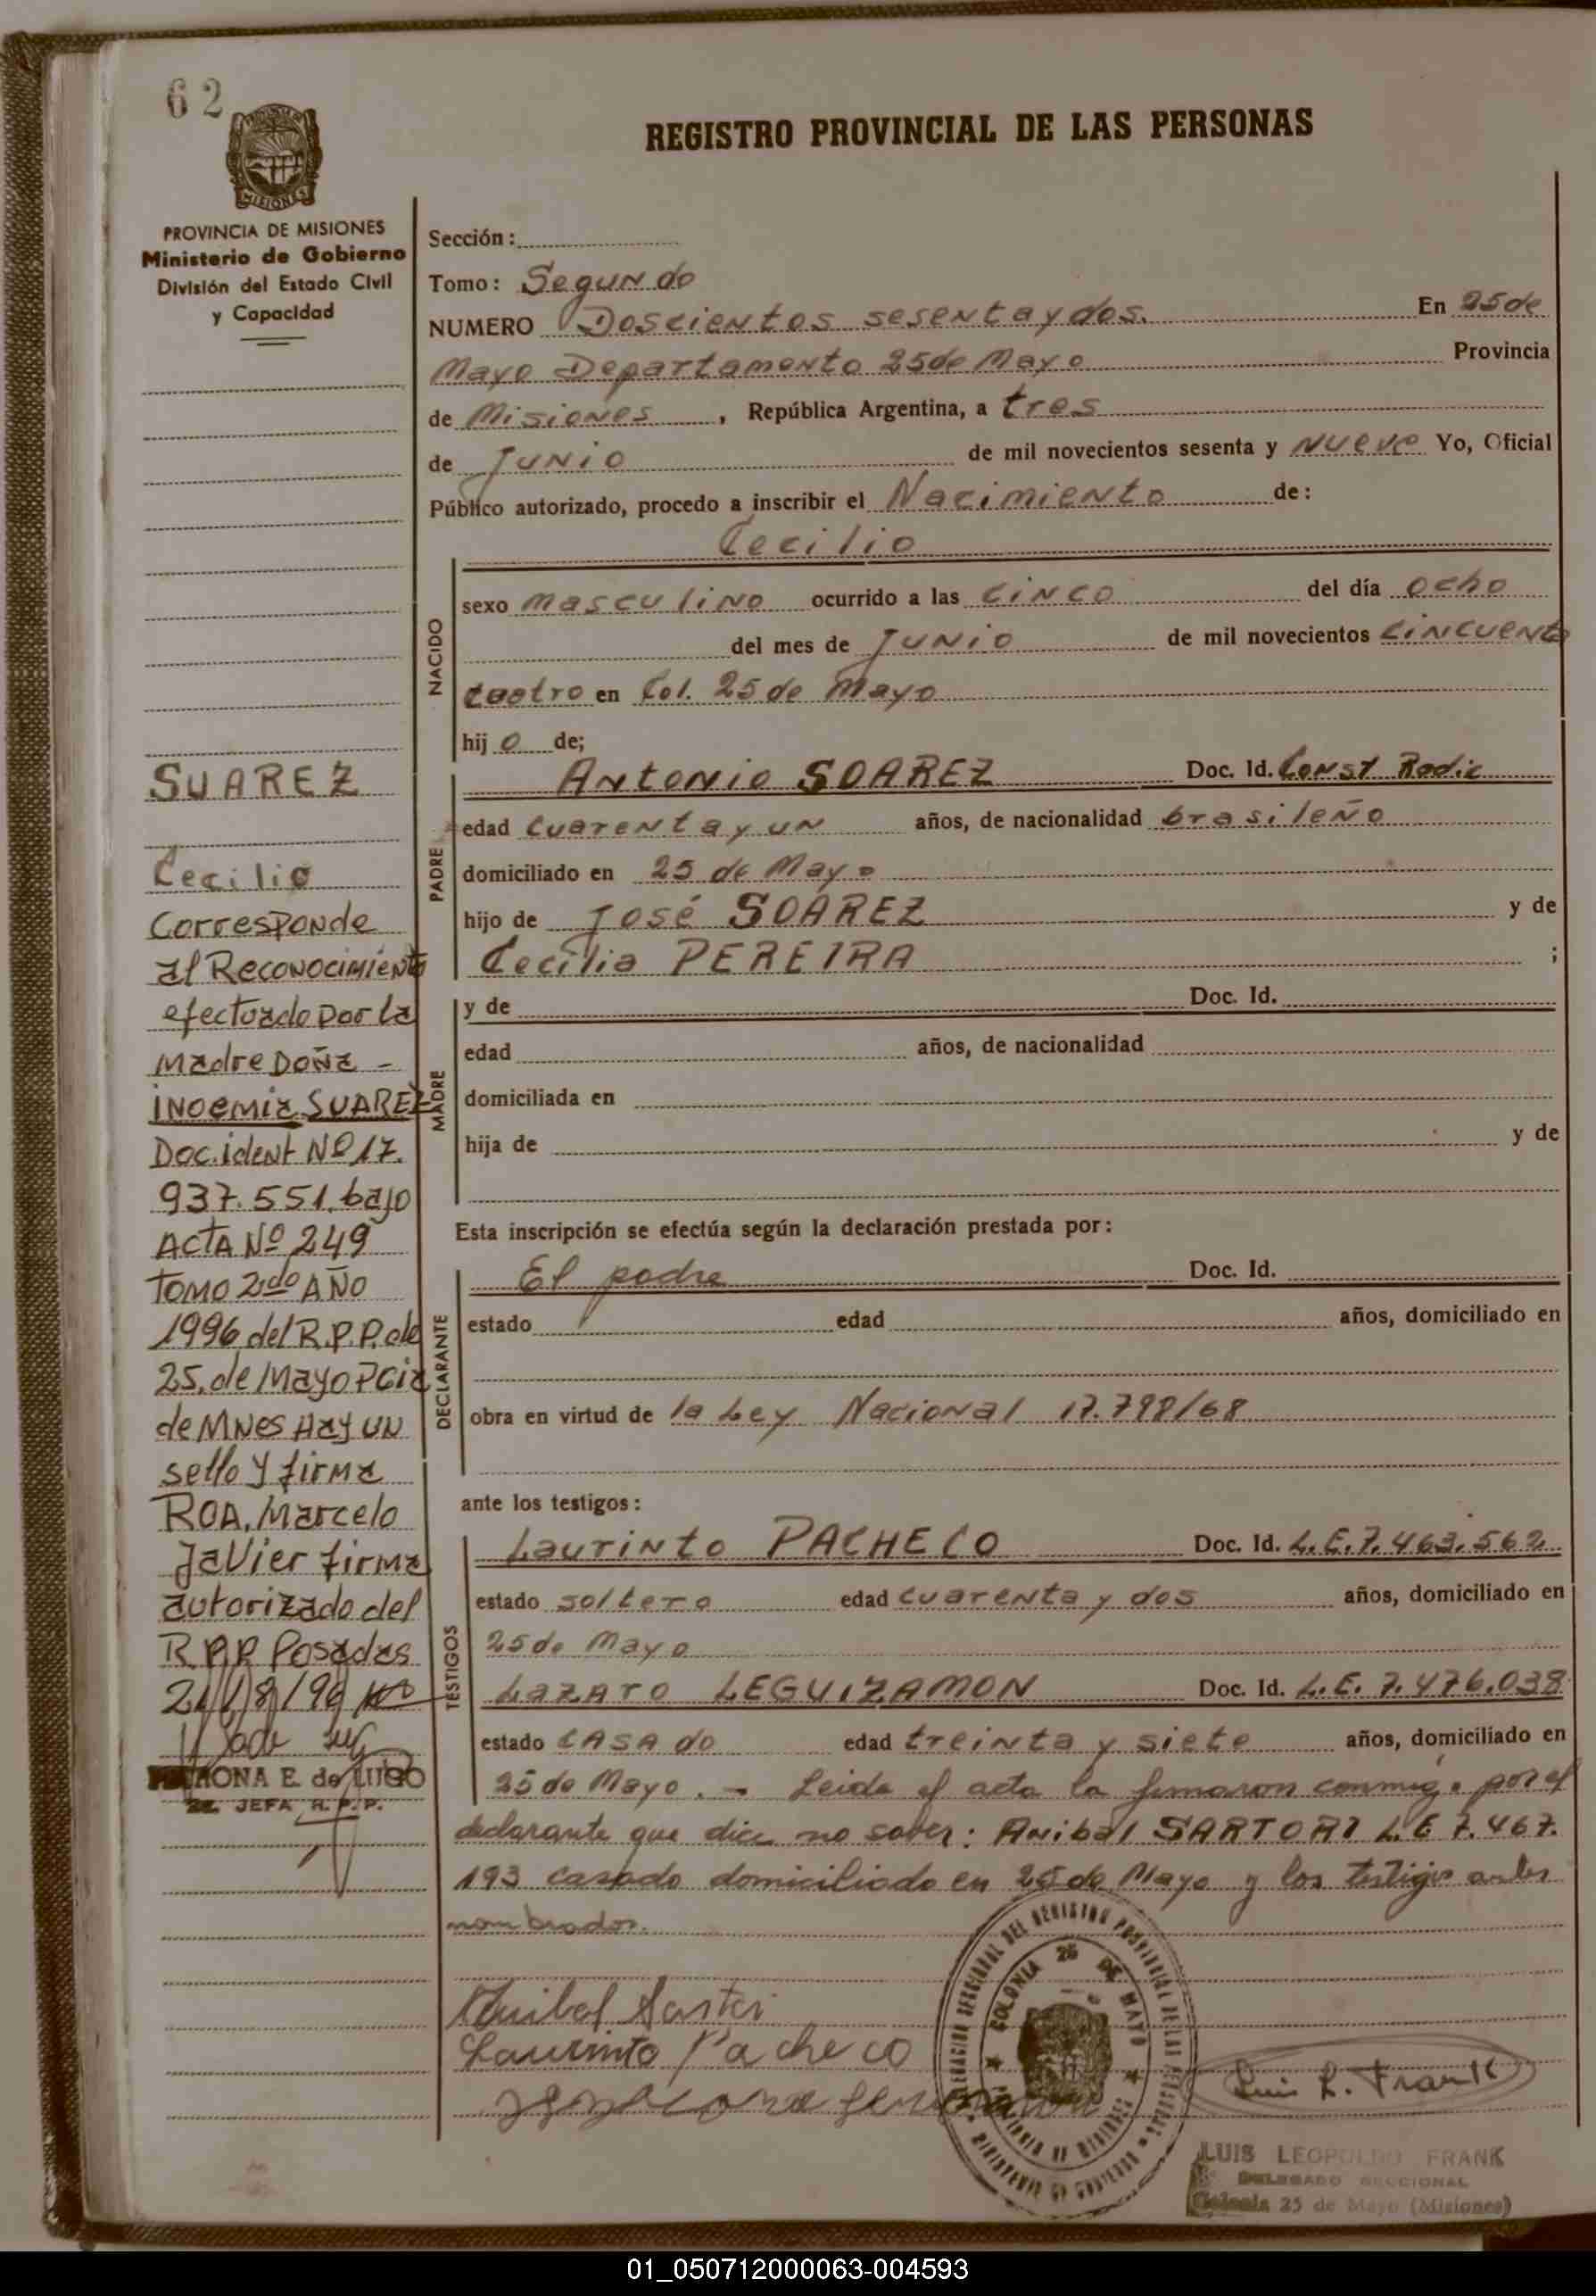 62
REGISTRO PROVINCIAL DE LAS PERSONAS
MISIONES
PROVINCIA DE MISIONES
Ministerio de Gobierno
División del Estado Civil
y Capacidad
SUAREZ
Cecilio
Corresponde
al Reconocimiento
efectuado por la
Madre DOÑA -
INOEMIA SUAREZ
Doc. ident Nº 17.
937.551. bajo
ACTA Nº 249
TOMO 2do AÑO
1996 del R.P.P. de
25. de Mayo Pcia
de MNes HAY UN
sello y firma
ROA, Marcelo
Javier firma
autorizado del
R.P.P. Posadas
E. de LUGO
JEFA R.P.P.
Sección:
Tomo: Segundo
NUMERO Doscientos sesenta y dos. En 25 de
Mayo Departamento 25 de Mayo Provincia
de Misiones, República Argentina, a tres
de Junio de mil novecientos sesenta y nueve Yo, Oficial
Público autorizado, procedo a inscribir el Nacimiento de:
Cecilio
NACIDO
sexo masculino ocurrido a las cinco del día ocho
del mes de Junio de mil novecientos cincuenta
cuatro en Col. 25 de Mayo
hijo de;
PADRE
Antonio SOAREZ Doc. Id. Const Radic
edad cuarenta y un años, de nacionalidad brasileño
domiciliado en 25 de Mayo
hijo de José SOAREZ y de
Cecilia PEREIRA ;
MADRE
y de Doc. Id.
edad años, de nacionalidad
domiciliada en
hija de y de
Esta inscripción se efectúa según la declaración prestada por:
DECLARANTE
El padre Doc. Id.
estado edad años, domiciliado en
obra en virtud de la Ley Nacional
ante los testigos:
TESTIGOS
Laurinto PACHECO Doc. Id. L.E. 7.463.562
estado soltero edad cuarenta y dos años, domiciliado en
25 de Mayo
Lazaro LEGUIZAMON Doc. Id. L.E. 7.476.038
estado casado edad treinta y siete años, domiciliado en
25 de Mayo. - Leida el acta la firmaron conmigo por el
declarante que dice no saber: Anibal SARTORI L.E 7.467.
193 casado domiciliado en 25 de Mayo y los testigos antes
nombrados.
Anibal Sartori
Laurinto Pacheco
COLONIA 25 DE MAYO
Luis L. Frank
LUIS LEOPOLDO FRANK
DELEGADO SECCIONAL
Colonia 25 de Mayo (Misiones)
01_050712000063-004593